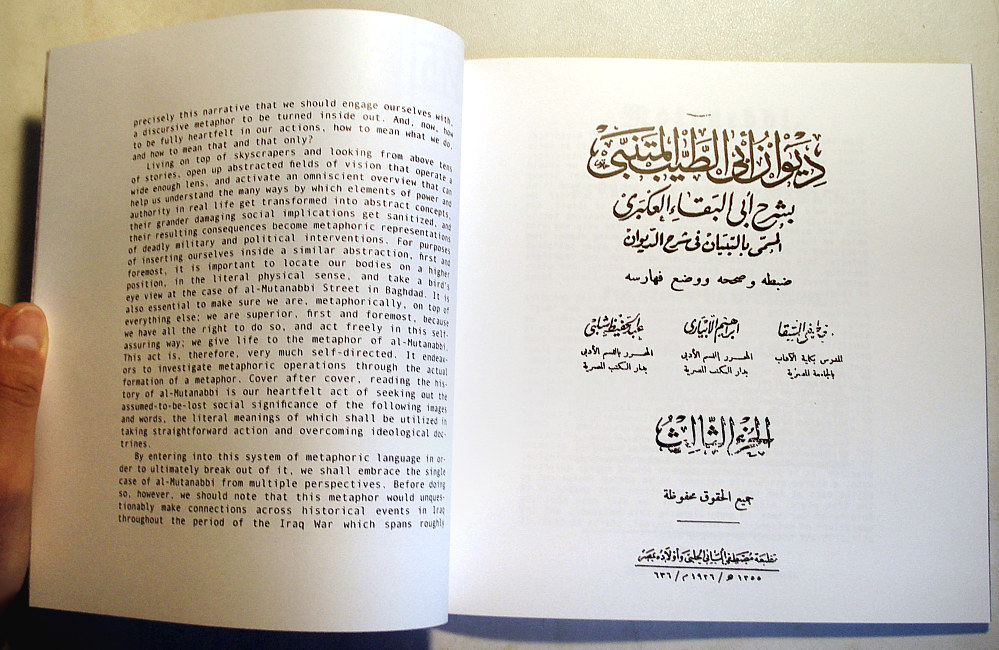 precisely this narrative that we should engage ourselves with,
a discursive metaphor to be turned inside out. And, now, how
to be fully heartfelt in our actions, how to mean what we do,
and how to mean that and that only?
Living on top of skyscrapers and looking from above tens
of stories, open up abstracted fields of vision that operate a
wide enough lens, and activate an omniscient overview that can
help us understand the many ways by which elements of power and
authority in real life get transformed into abstract concepts,
their grander damaging social implications get sanitized, and
their resulting consequences become metaphoric representations
of deadly military and political interventions. For purposes
of inserting ourselves inside a similar abstraction, first and
foremost, it is important to locate our bodies on a higher
position, in the literal physical sense, and take a bird's
eye view at the case of al-Mutanabbi Street in Baghdad. It is
also essential to make sure we are, metaphorically, on top of
everything else; we are superior, first and foremost, because
we have all the right to do so, and act freely in this self-
assuring way; we give life to the metaphor of al-Mutanabbi.
This act is, therefore, very much self-directed. It endeav-
ors to investigate metaphoric operations through the actual
formation of a metaphor. Cover after cover, reading the his-
tory of al-Mutanabbi is our heartfelt act of seeking out the
assumed-to-be-lost social significance of the following images
and words, the literal meanings of which shall be utilized in
taking straightforward action and overcoming ideological doc-
trines.
By entering into this system of metaphoric language in or-
der to ultimately break out of it, we shall embrace the single
case of al-Mutanabbi from multiple perspectives. Before doing
so, however, we should note that this metaphor would unques-
tionably make connections across historical events in Iraq
throughout the period of the Iraq War which spans roughly
ديوان أبي الطيب المتنبي
بشرح أبي البقاء العكبري
المسمى بالتبيان في شرح الديوان
ضبطه وصححه ووضع فهارسه
مصطفى السقا ابراهيم الأبياري عبد الحفيظ شلبي
المدرس بكلية الآداب المحرر بالقسم الأدبي المحرر بالقسم الأدبي
بالجامعة المصرية بدار الكتب المصرية بدار الكتب المصرية
الجزء الثالث
جميع الحقوق محفوظة
مطبعة مصطفى البابي الحلبي وأولاده بمصر
١٣٥٥ هـ / ١٩٣٦ م / ٦٣٦